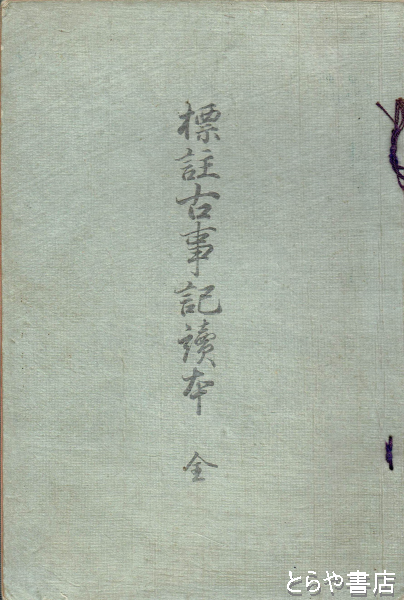 標註古事記讀本 全
とらや書店